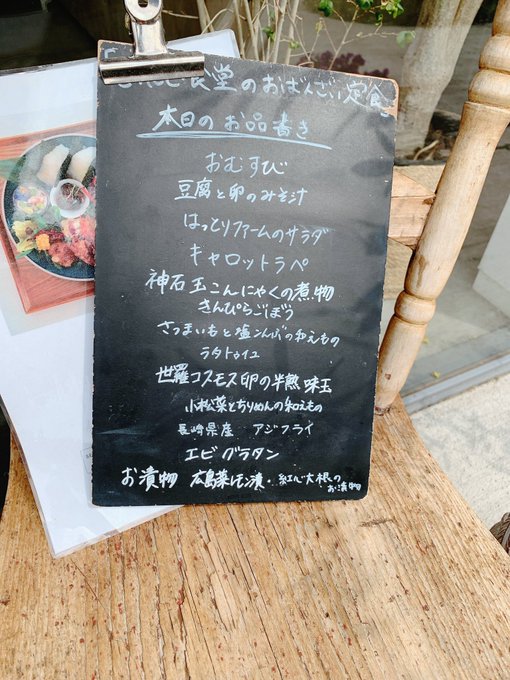 食堂のおばんざい定食
本日のお品書き
おむすび
豆腐と卵のみそ汁
はっとりファームのサラダ
キャロットラペ
神石玉こんにゃくの煮物
きんぴらごぼう
さつまいもと塩こんぶの和えもの
ラタトゥイユ
世羅コスモス卵の半熟味玉
小松菜とちりめんの和えもの
長崎県産 アジフライ
エビグラタン
お漬物 広島菜レモン漬・紅心大根の
お漬物